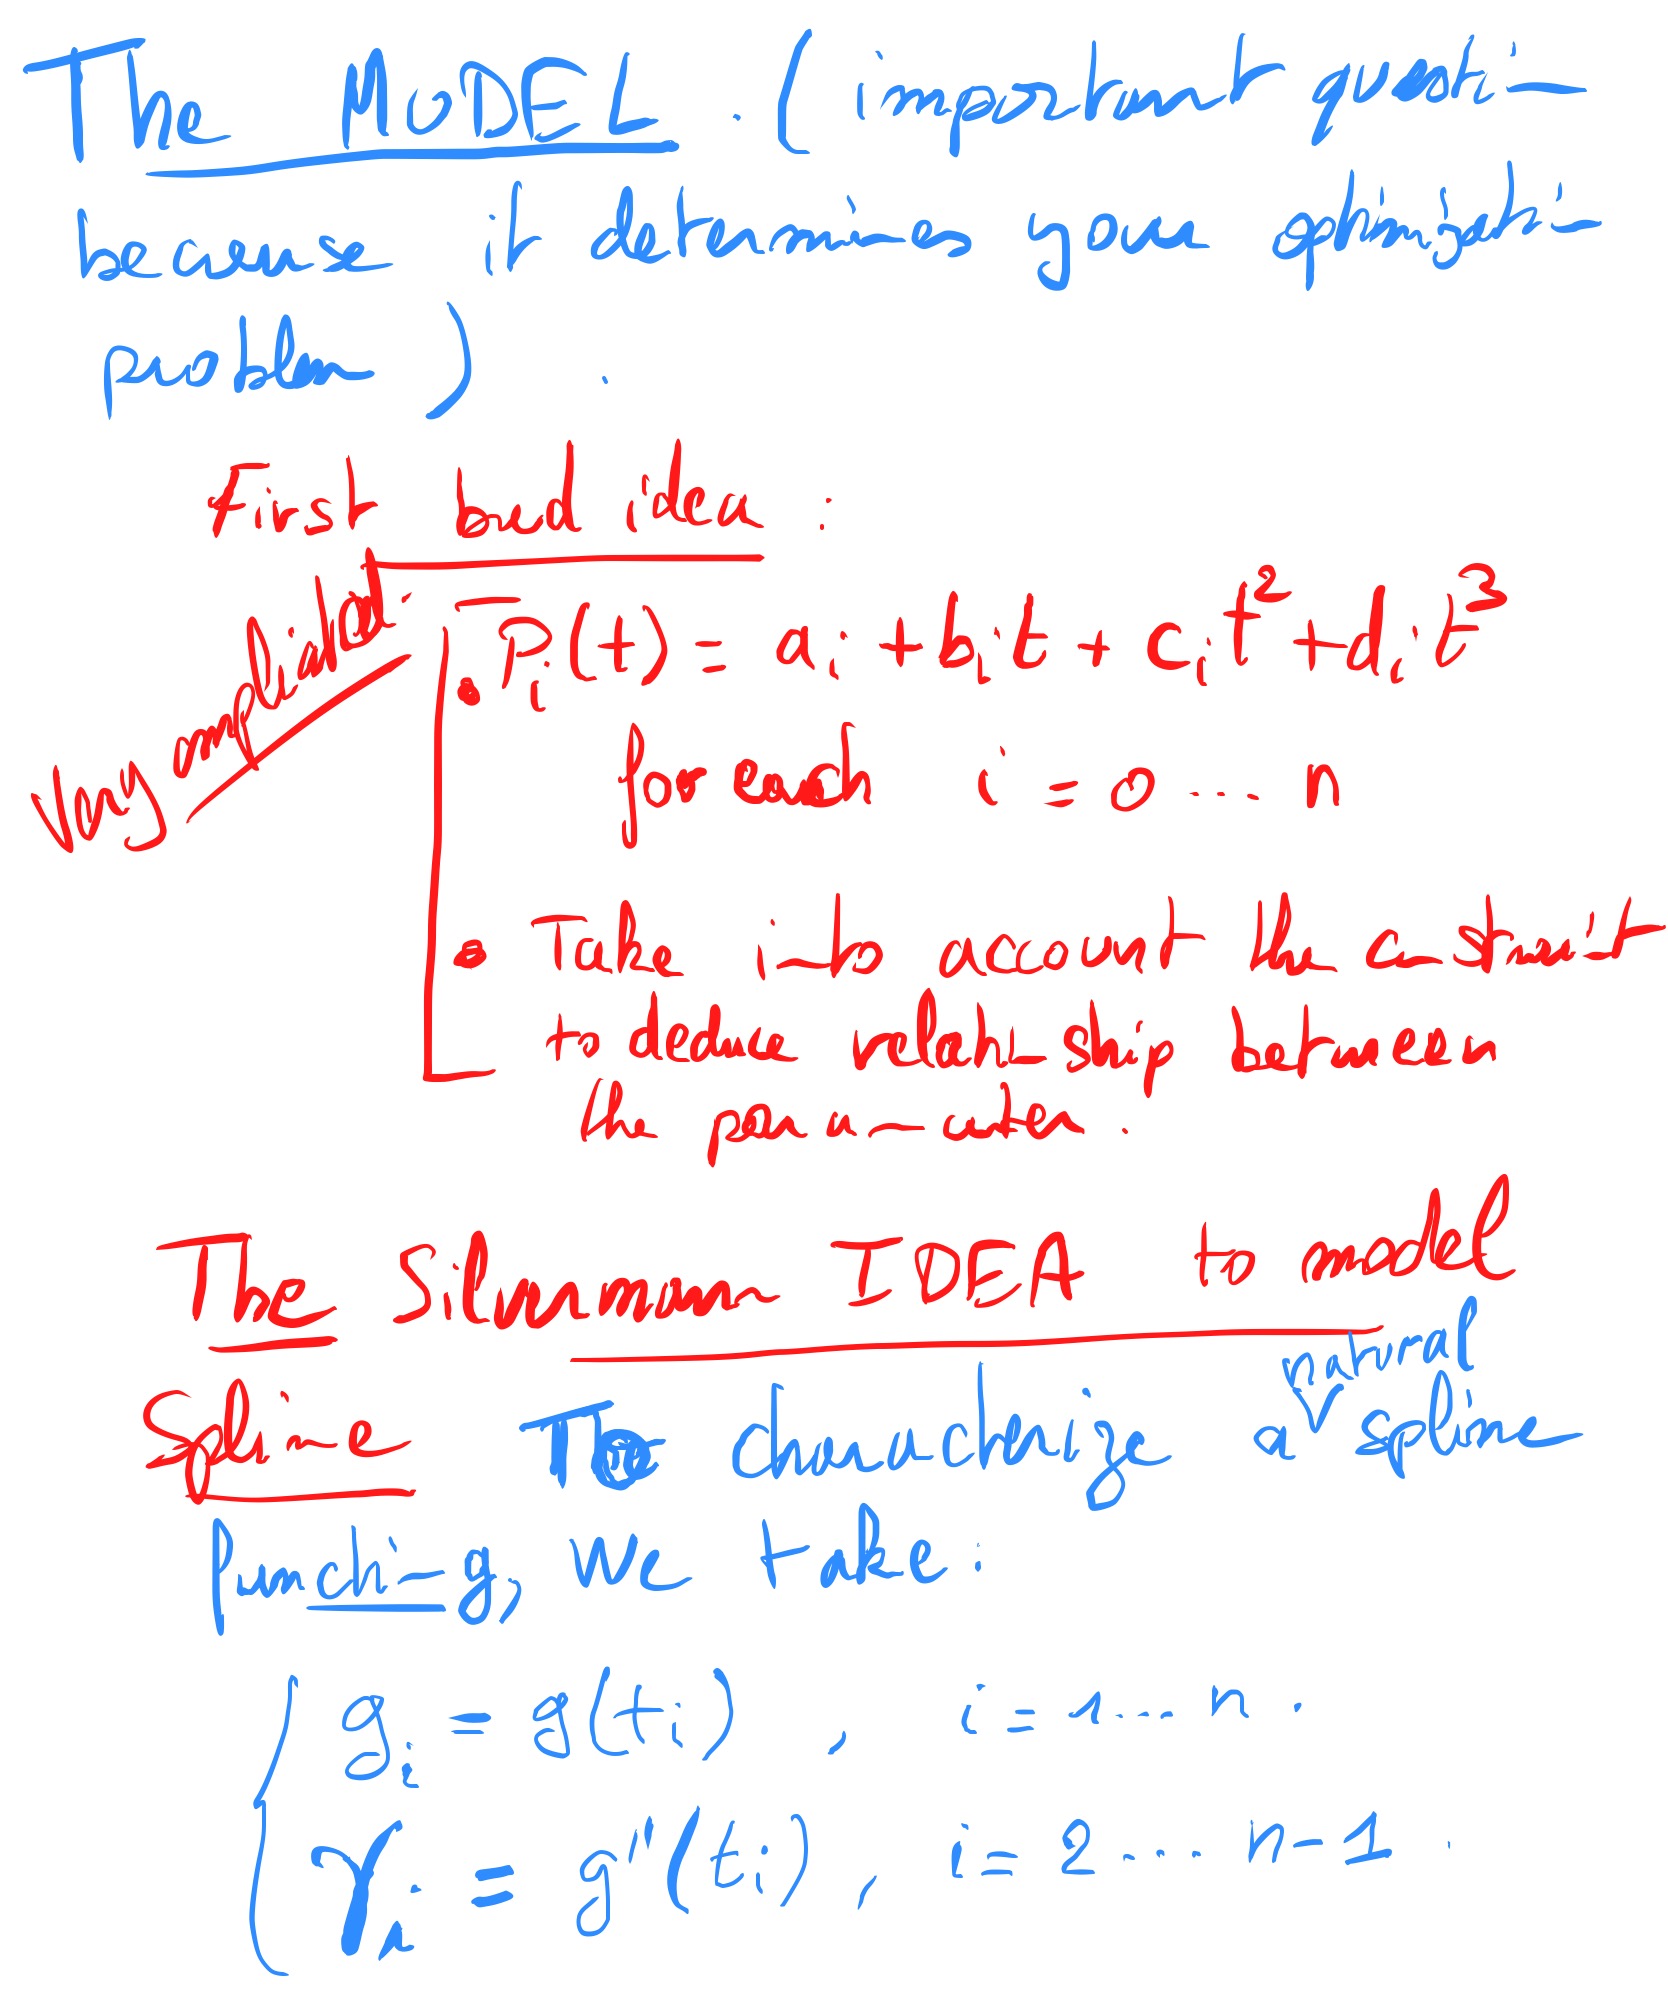 The MODEL. (important question
because it determines your optimization
problem).
First bad idea :
Very complicated.
• Pᵢ(t) = aᵢ + bᵢt + cᵢt² + dᵢt³
for each i = 0 ... n
• Take into account the constraint
to deduce relationship between
the parameter.
The Silverman IDEA to model
Spline To characterize a natural spline
function g, we take:
gᵢ = g(tᵢ) , i = 1 ... n.
γᵢ = g''(tᵢ) , i = 2 ... n-1.